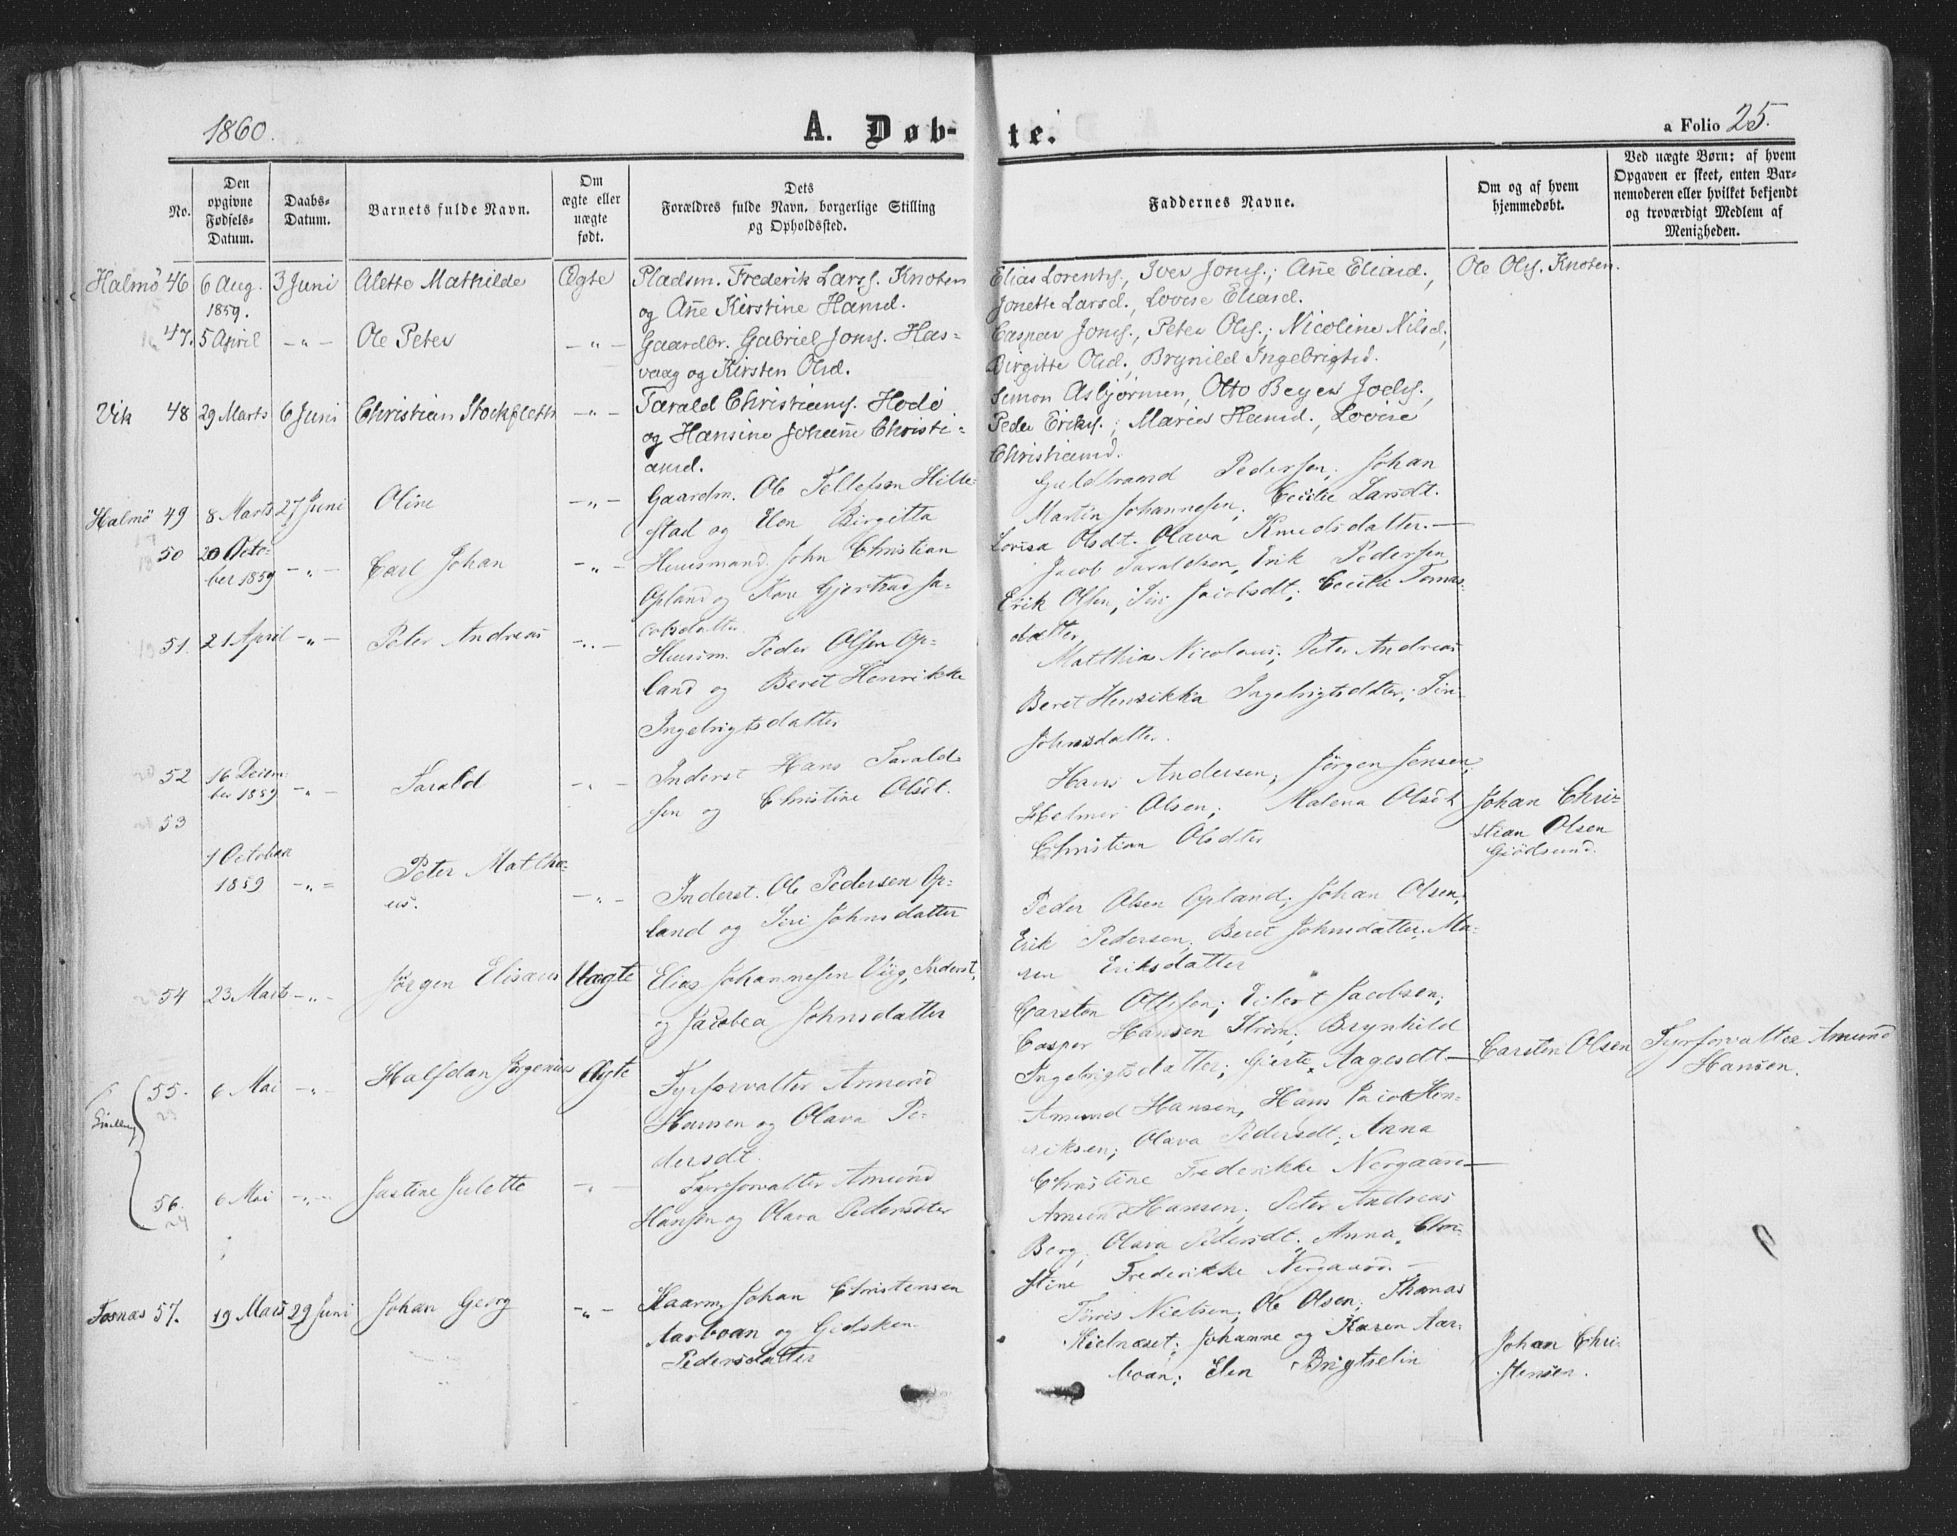 1860.
A. Døb-
te.
a Folio 25.
No.
Den opgivne Fødsels-Datum.
Daabs-Datum.
Barnets fulde Navn.
Om ægte eller uægte født.
Dets Forældres fulde Navn, borgerlige Stilling og Opholdssted.
Faddernes Navne.
Om og af hvem hjemmedøbt.
Ved uægte Børn: af hvem Opgaven er skeet, enten Barnemoderen eller hvilket bekjendt og troværdigt Medlem af Menigheden.
Halmø 46 6 Aug. 1859. 3 Juni Alette Mathilde Ægte
Pladsm. Frederik Larss. Knoten
og Añe Kirstine Hansd.
Elias Lorents., Iver Jons.; Añe Eliasd.,
Jonette Larsd., Lovise Eliasd.
Ole Ols. Knoten.
47. 5 April -"- Ole Peter -"-
Gaardbr. Gabriel Jons. Has-
vaag og Kirsten Olsd.
Caspar Jons., Peter Ols.; Nicoline Nilsd.,
Birgitte Olsd., Brynild Ingebrigtsd.
Vik 48 29 Marts 6 Juni Christian Stockfleth -"-
Tarald Christians. Hodø
og Hansine Johañe Christi-
ansd.
Simon Asbjørnsen, Otto Beyer Joels.,
Peder Eriks.; Maries Hansd., Lovise
Christiansd.
Halmø 49 8 Marts 27 Juni Oline -"-
Gaardm. Ole Tellefsen Hille-
stad og Elen Birgitta
Guldbrand Pedersen, Johan
Martin Johannesen, Cecilie Larsdt.
Lovisa Olsdt. Olava Knudsdatter.—
50 20 Octo-
ber 1859 -"- Carl Johan -"-
Huusmand John Christian
Opland og Karen Gjertrud Ja-
cobsdatter
Jacob Taraldsen, Erik Pedersen
Erik Olsen, Siri Jacobsdt; Cecilia Tomas-
datter
51. 21 April -"- Peter Andreas -"-
Huusm. Peder Olsen Op-
land og Beret Henrikke
Ingebrigtsdatter
Matthias Nicolaus; Peter Andreas
Beret Henrikka Ingebrigtsdatter; Siri
Johnsdatter.
52 16 Decem
ber 1859 -"- Tarald -"-
Inderst Hans Tarald-
sen og Christine Olsdt.
Hans Andersen, Jørgen Jensen,
Helmer Olsen; Malena Olsdt
Christian Olsdter
Johan Chri-
stian Olsen
Giødsund.
53
1 October
1859 -"- Peter Mathæ-
us. -"-
Inderst. Ole Pedersen Op-
land og Siri Johnsdatter
Peder Olsen Opland; Johan Olsen,
Erik Pedersen, Beret Johnsdatter, Ma-
ren Eriksdatter
54 23 Marts -"- Jørgen Elisæus Uægte
Elias Johannesen Viig, Inderst,
og Jacobea Johnsdatter
Carsten Ottesen; Eilert Jacobsen;
Casper Hansen Strøm; Brynhild
Ingebrigtsdatter; Gjerte Aagesdt—
Carsten Olsen
Fyrforvalter Amund
Hansen.
55. 6 Mai -"- Halfdan Jørgenius Ægte
Fyrforvalter Amund
Hansen og Olava Pe-
dersdt.
Amund Hansen, Hans Jacob Hen-
riksen; Olava Pedersdt; Anna
Christine Frederikke Nergaard—
56. 6 Mai -"- Justine Julette -"-
Fyrforvalter Amund
Hansen og Olava Pedersdter
Amund Hansen; Peter Andreas
Berg; Olava Pedersdt; Anna Chri-
stine Frederikke Nergaard.—
Fosnæs 57. 19 Mars 29 Juni Johan Georg -"-
Gaarm. Johan Christensen
Aarboan og Gidsken
Pedersdatter
Tøris Nielsen; Ole Olsen; Thomas
Kielnæset; Johanne og Karen Aar-
boan; Elen Brigtselin
Johan Chri-
stensen.